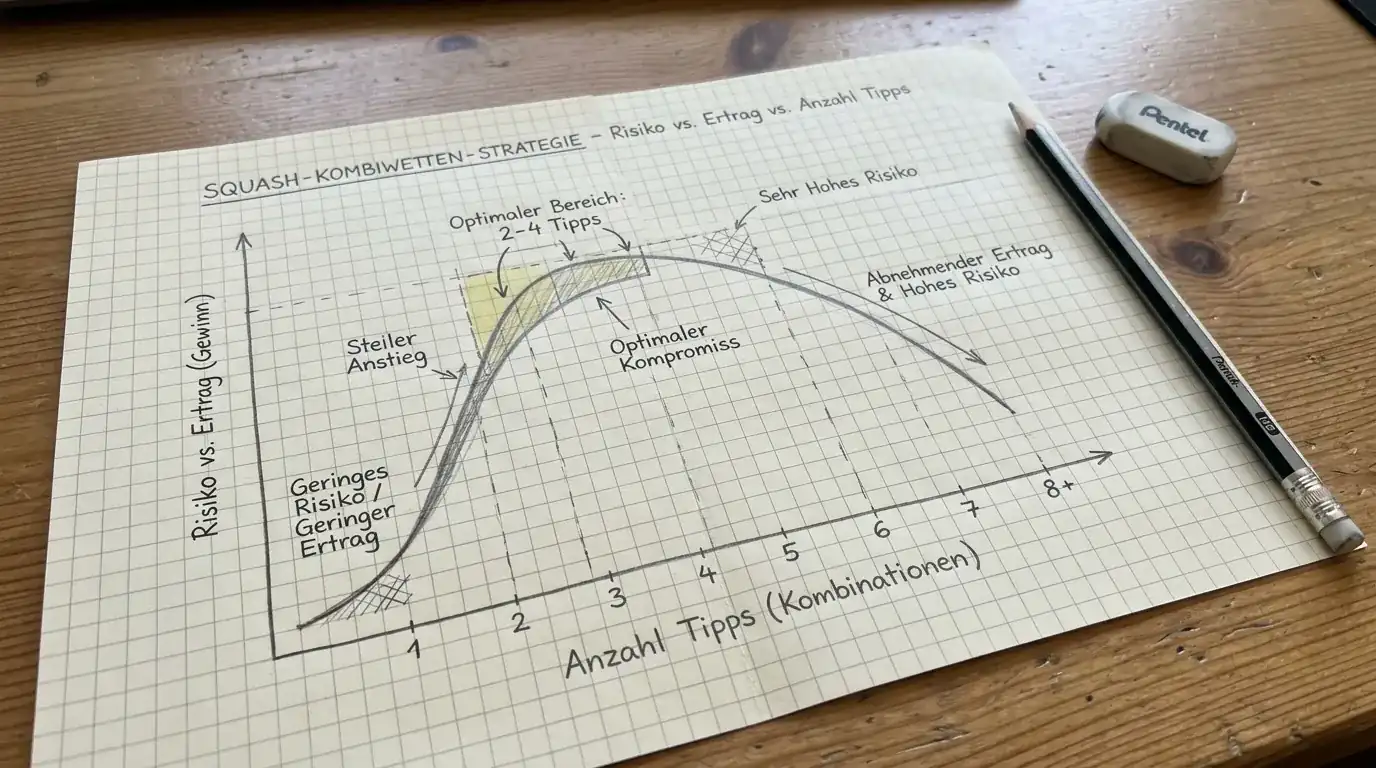 SQUASH-KOMBIWETTEN-STRATEGIE – Risiko vs. Ertrag vs. Anzahl Tipps
Optimaler Bereich:
2-4 Tipps
Sehr Hohes Risiko
Abnehmender Ertrag
& Hohes Risiko
Steiler
Anstieg
Optimaler
Kompromiss
Geringes
Risiko /
Geringer
Ertrag
Risiko vs. Ertrag (Gewinn)
1 2 3 4 5 6 7 8+
Anzahl Tipps (Kombinationen)
Pentel